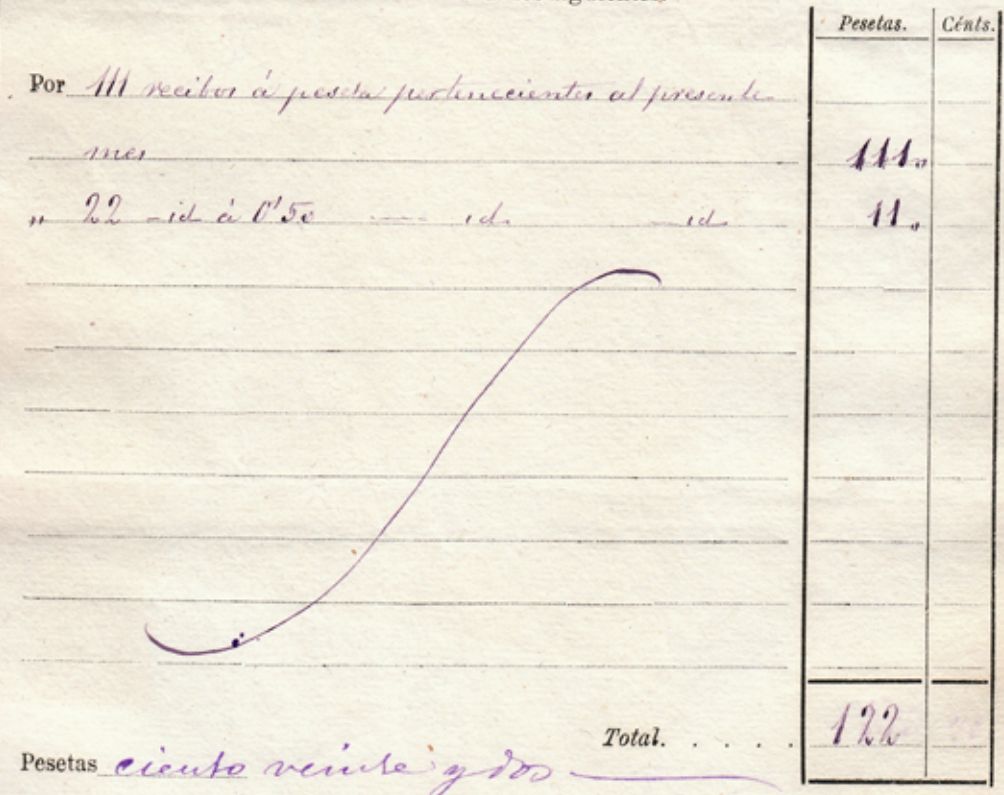 Pesetas. Cénts.
Por 111 recibos á peseta pertenecientes al presente
mes 111„
„ 22 id á 0'50 id id 11„
Total. . . . . 122
Pesetas ciento veinte y dos